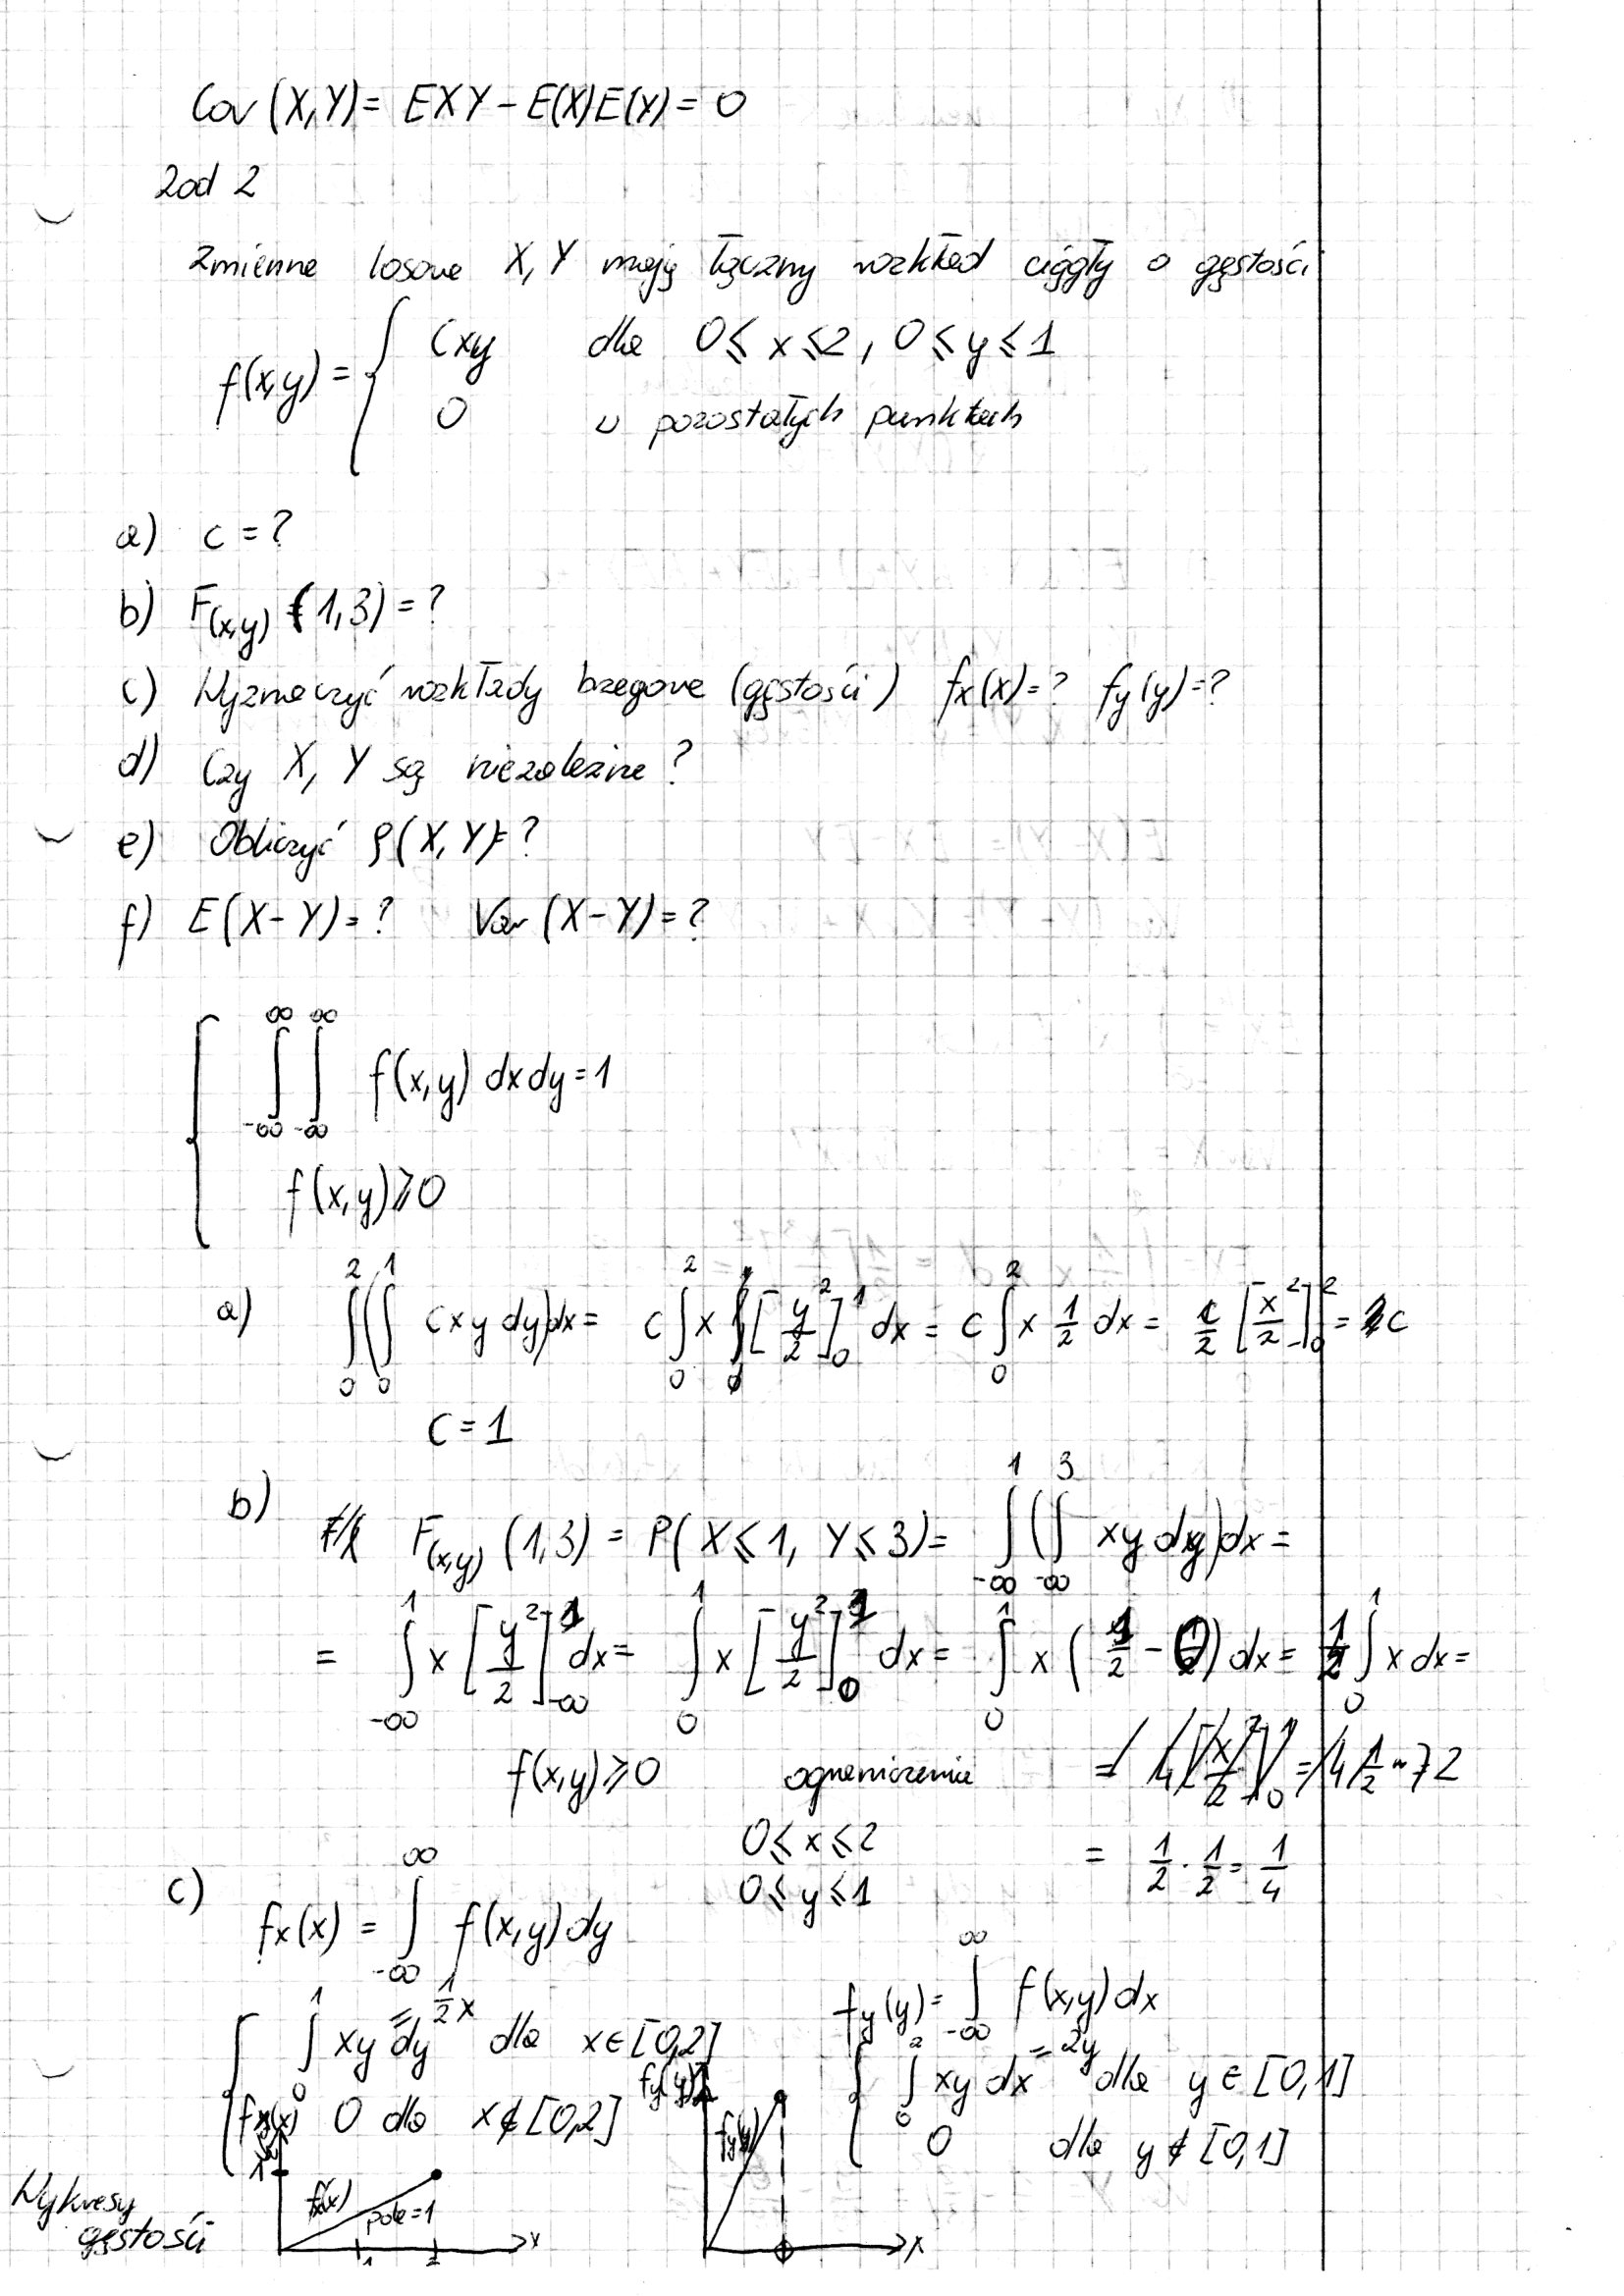 Cov (X,Y) = EXY - E(X)E(Y) = 0
Zad 2
Zmienne losowe X, Y mają łączny rozkład ciągły o gęstości
f(x,y) = { Cxy dla 0 ≤ x ≤ 2, 0 ≤ y ≤ 1
0 w pozostałych punktach
a) c = ?
b) F(x,y) (1,3) = ?
c) Wyznaczyć rozkłady brzegowe (gęstości) fx(x) = ? fy(y) = ?
d) Czy X, Y są niezależne ?
e) Obliczyć ρ(X, Y) = ?
f) E(X-Y) = ? Var (X-Y) = ?
{ ∫_{-∞}^{∞} ∫_{-∞}^{∞} f(x,y) dx dy = 1
f(x,y) ≥ 0
a) ∫_0^2 (∫_0^1 cxy dy) dx = c ∫_0^2 x [y²/2]_0^1 dx = c ∫_0^2 x 1/2 dx = c/2 [x²/2]_0^2 = c
C = 1
b) F(x,y) (1,3) = P( X ≤ 1, Y ≤ 3) = ∫_{-∞}^1 (∫_{-∞}^3 xy dy) dx =
= ∫_{-∞}^1 x [y²/2]_{-∞}^1 dx = ∫_0^1 x [y²/2]_0^1 dx = ∫_0^1 x (1/2 - 0) dx = 1/2 ∫_0^1 x dx =
f(x,y) ≥ 0 ograniczenia = 4 [x²/2]_0^1 = 4 1/2 = 2
0 ≤ x ≤ 2
0 ≤ y ≤ 1
= 1/2 · 1/2 = 1/4
c) fx(x) = ∫_{-∞}^{∞} f(x,y) dy
{ ∫_0^1 xy dy = 1/2 x dla x ∈ [0,2]
0 dla x ∉ [0,2]
fy(y) = ∫_{-∞}^{∞} f(x,y) dx
{ ∫_0^2 xy dx = 2y dla y ∈ [0,1]
0 dla y ∉ [0,1]
Wykresy
gęstości
fx(x)
1
fx(x)
pole = 1
1 2 x
fy(y)
2
fy(y)
x